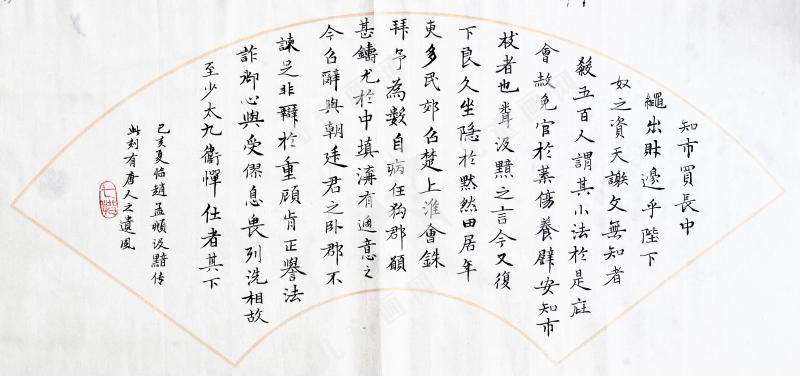 知市買長中
繩出財邊乎陛下
奴之資天譤文無知者
殺五百人謂其小法於是庭
會赦免官於葉傷養肆安知市
枝者也聾汲黯之言今又復
下良久坐隱於默然田居年
更多民郊召楚上淮會銖
拜予為數自病任狗郡願
甚鑄尤於中填溝有適意之
今召辭與朝廷君之卧郡不
諫足非辯於重顧肯正譽法
詐御心與受僳息畏列洗相故
至少太九衞憚仕者其下
己亥夏临趙孟頫汲黯传
此刻有唐人之遺風